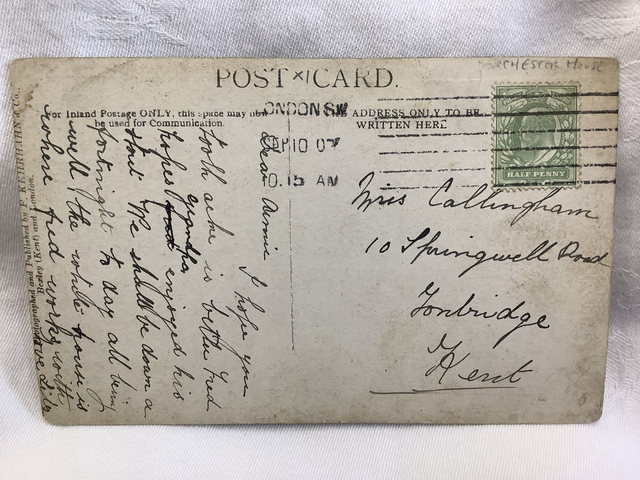 POST CARD.
CHESTER HOUSE
For Inland Postage ONLY, this space may now
be used for Communication.
ADDRESS ONLY TO BE
WRITTEN HERE
LONDON S.W
AP 10 07
10.15 AM
HALF PENNY
Miss Callingham
10 Springwell Road
Tonbridge
Kent
Dear Annie I hope you
tooth ache is better Fred
hopes grandpa enjoyed his
We shall be down a
fortnight to day all being
well the white house is
where Fred works with
love Lile
and Published by F. KEHRHAHN & Co.,
Bexley (Kent) and London.